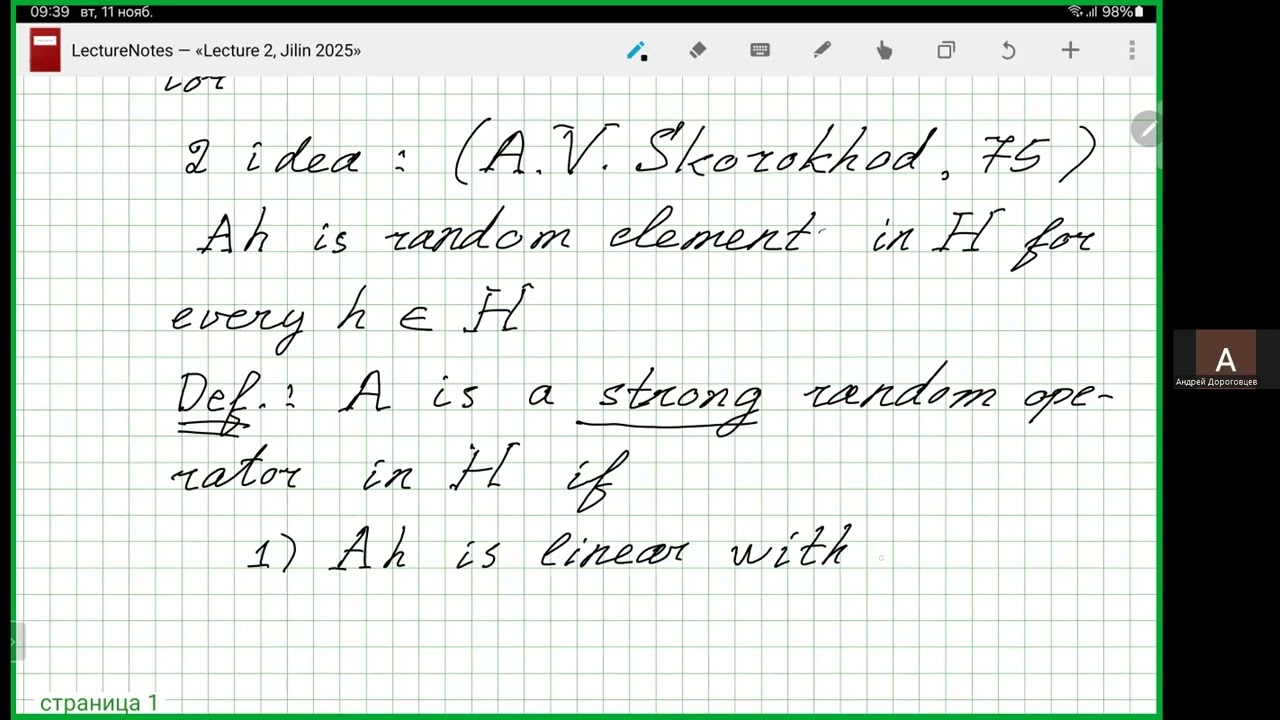 09:39 вт, 11 нояб.
98%
LectureNotes — «Lecture 2, Jilin 2025»
tor
2 idea : (A.V. Skorokhod, 75)
Ah is random element in H for
every h ∈ H
Def.: A is a strong random ope-
rator in H if
1) Ah is linear with
A
Андрей Дороговцев
страница 1